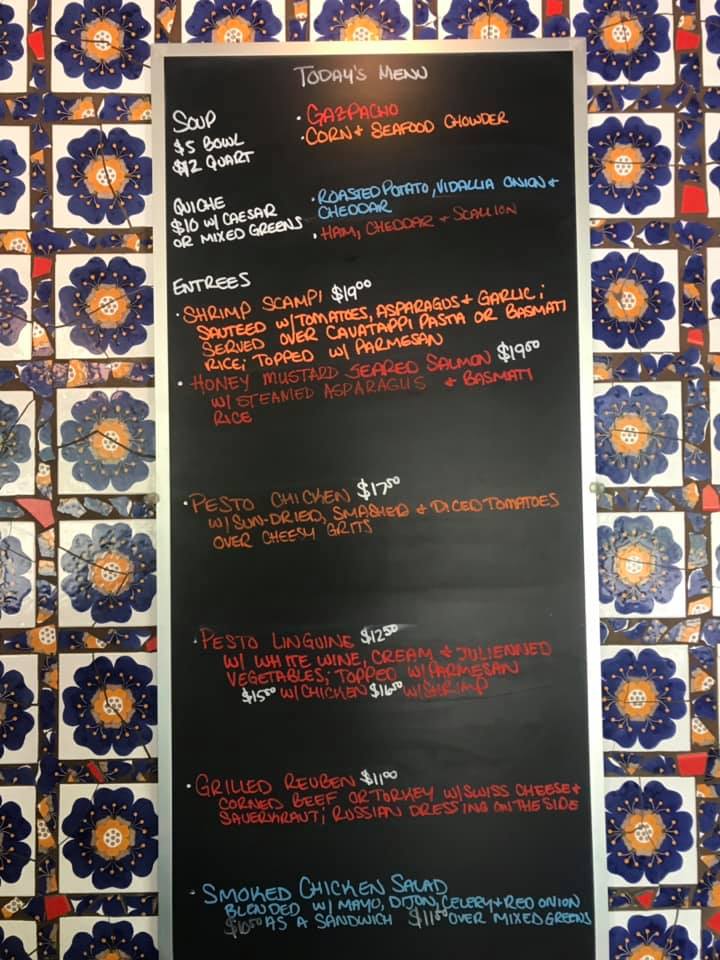 TODAY'S MENU
SOUP
$5 BOWL
$12 QUART
• GAZPACHO
• CORN + SEAFOOD CHOWDER
QUICHE
$10 W/ CAESAR
OR MIXED GREENS
• ROASTED POTATO, VIDALLIA ONION +
CHEDDAR
• HAM, CHEDDAR + SCALLION
ENTREES
• SHRIMP SCAMPI $19⁰⁰
SAUTEED W/ TOMATOES, ASPARAGUS + GARLIC;
SERVED OVER CAVATAPPI PASTA OR BASMATI
RICE; TOPPED W/ PARMESAN
• HONEY MUSTARD SEARED SALMON $19⁰⁰
W/ STEAMED ASPARAGUS + BASMATI
RICE
• PESTO CHICKEN $17⁵⁰
W/ SUN-DRIED, SMASHED + DICED TOMATOES
OVER CHEESY GRITS
• PESTO LINGUINE $12⁵⁰
W/ WHITE WINE, CREAM + JULIENNED
VEGETABLES; TOPPED W/ PARMESAN
$15⁰⁰ W/ CHICKEN $16⁰⁰ W/ SHRIMP
• GRILLED REUBEN $11⁰⁰
CORNED BEEF OR TURKEY W/ SWISS CHEESE +
SAUERKRAUT; RUSSIAN DRESSING ON THE SIDE
• SMOKED CHICKEN SALAD
BLENDED W/ MAYO, DIJON, CELERY + RED ONION
$10⁰⁰ AS A SANDWICH $11⁰⁰ OVER MIXED GREENS